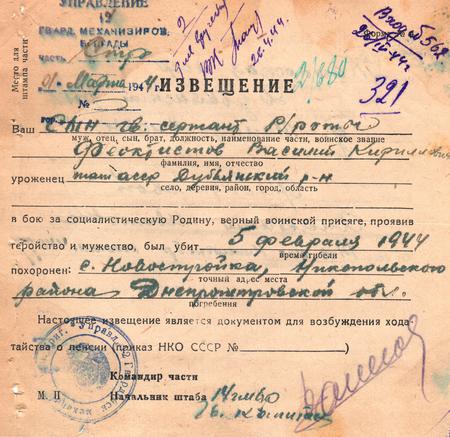 УПРАВЛЕНИЕ
ГВАРД. МЕХАНИЗИРОВ.
БРИГАДЫ
часть
Место для штампа части
Марта 1944
№
ИЗВЕЩЕНИЕ
26.4.44.
2/680
Форма №
Вход №
321
Ваш сын гв. сержант с/роты
муж, отец, сын, брат, должность, наименование части, воинское звание
Феоктистов Василий Кириллович
фамилия, имя, отчество
уроженец татасср Дубъязский р-н
село, деревня, район, город, область
в бою за социалистическую Родину, верный воинской присяге, проявив
геройство и мужество, был убит 5 февраля 1944
время гибели
похоронен: с. Новостройка, Никопольского
точный адрес места
района Днепропетровской обл.
погребения
Настоящее извещение является документом для возбуждения хода
тайства о пенсии (приказ НКО СССР №
Командир части
М. П
Начальник штаба